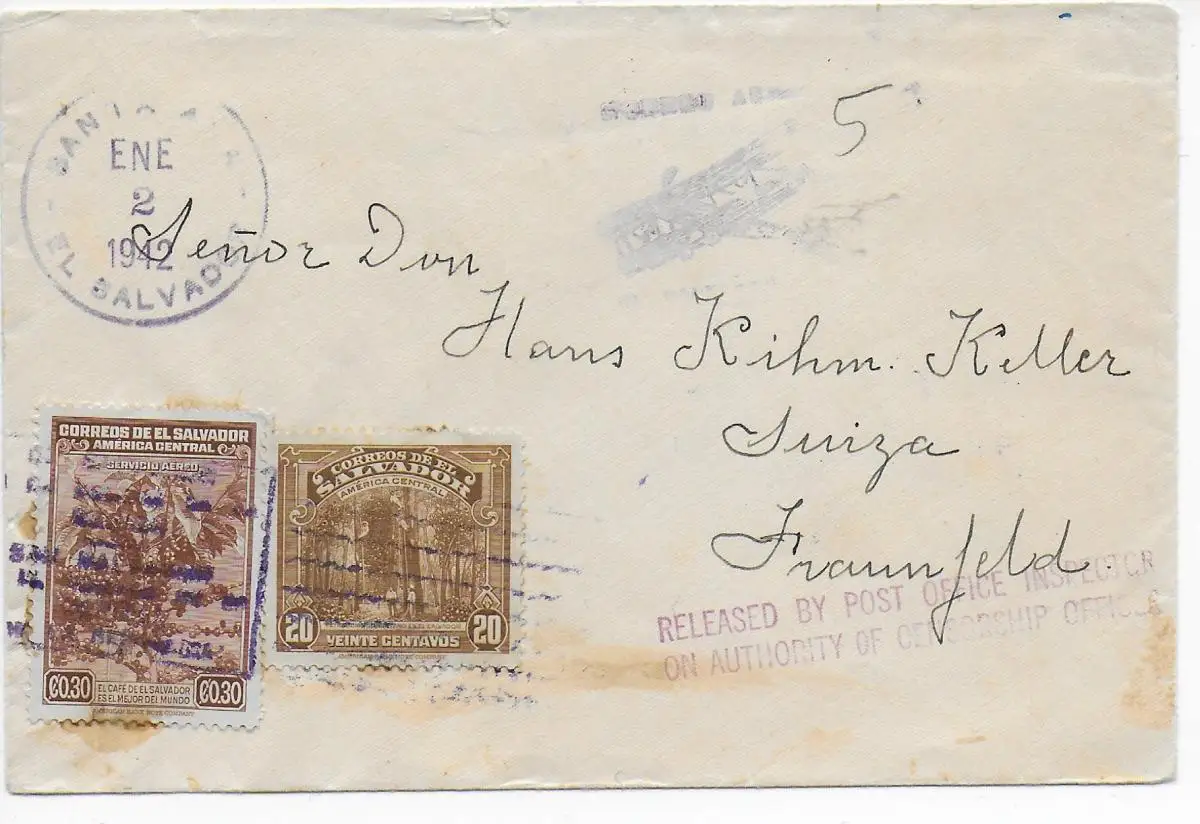 ENE
2
1942
EL SALVADOR
5
Señor Don
Hans Kihm. Keller
Suiza
Fraunfeld.
CORREOS DE EL SALVADOR
AMÉRICA CENTRAL
SERVICIO AEREO
₡0.30
EL CAFÉ DE EL SALVADOR
ES EL MEJOR DEL MUNDO
₡0.30
AMERICAN BANK NOTE COMPANY
CORREOS DE EL
SALVADOR
AMÉRICA CENTRAL
20
VEINTE CENTAVOS
20
RELEASED BY POST OFFICE INSPECTOR
ON AUTHORITY OF CENSORSHIP OFFICE